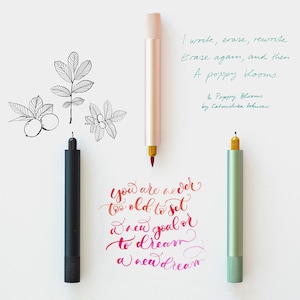 I write, erase, rewrite
Erase again, and then
A poppy blooms.
Poppy Blooms
by Katsushika Hokusai
you are never
too old to set
a new goal or
to dream
a new dream